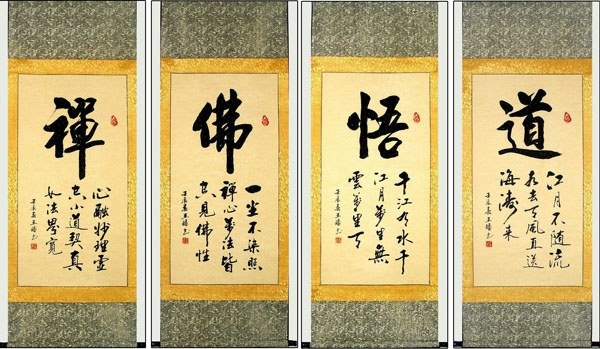 禪
心融妙理虛
空小道契真
如法界寬
佛
一尘不染照
禪心萬法皆
空見佛性
悟
千江有水千
江月萬里無
雲萬里天
道
江月不随流
水去天風直送
海濤来